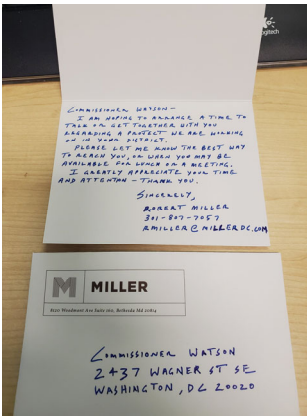 logitech
COMMISSIONER WATSON-
I AM HOPING TO ARRANGE A TIME TO
TALK OR GET TOGETHER WITH YOU
REGARDING A PROJECT WE ARE WORKING
ON IN YOUR DISTRICT.
PLEASE LET ME KNOW THE BEST WAY
TO REACH YOU, OR WHEN YOU MAY BE
AVAILABLE FOR LUNCH OR A MEETING.
I GREATLY APPRECIATE YOUR TIME
AND ATTENTION - THANK YOU.
SINCERELY,
ROBERT MILLER
301-807-7057
RMILLER@MILLERDC.COM
M MILLER
Woodmont Ave Suite Bethesda Md 20814
COMMISSIONER WATSON
2437 WAGNER ST SE
WASHINGTON, DC 20020